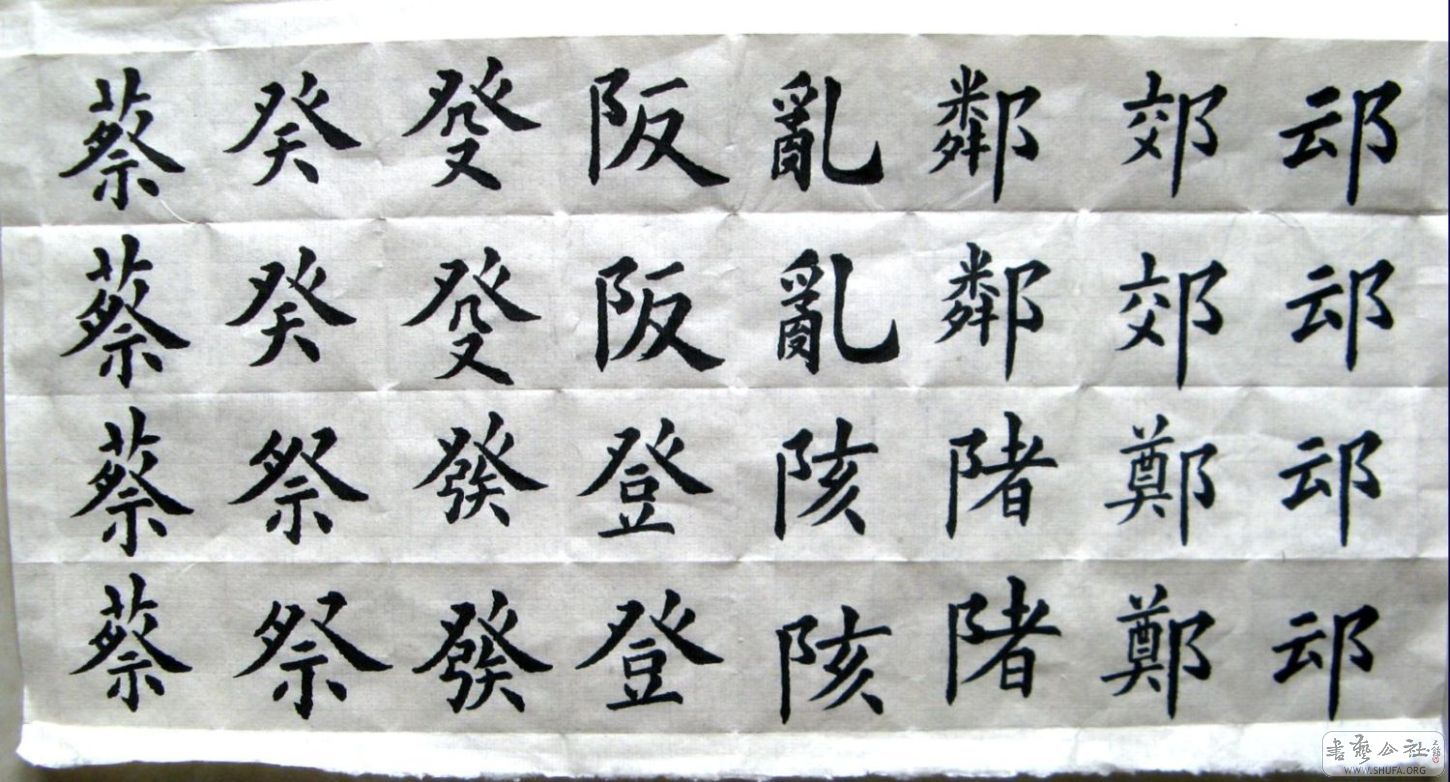 䢵䢵䢵䢵
郊郊鄭鄭
鄰鄰陼陼
亂亂陔陔
阪阪登登
癹癹發發
癸癸祭祭
蔡蔡蔡蔡
書藝公社
WWW.SHUFA.ORG